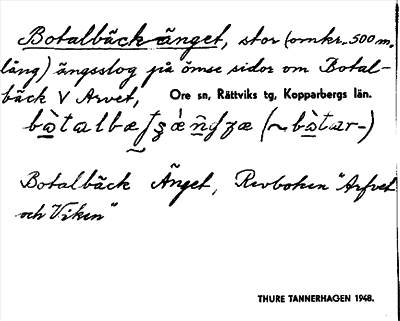 Botalbäck änget, stor (omkr. 500 m.
lång) ängsslog på ömse sidor om Botal-
bäck V Arvet, Ore sn, Rättviks tg, Kopparbergs län.
Botalbäck Änget, Revboken "Arfvet
och Viken"
THURE TANNERHAGEN 1948.